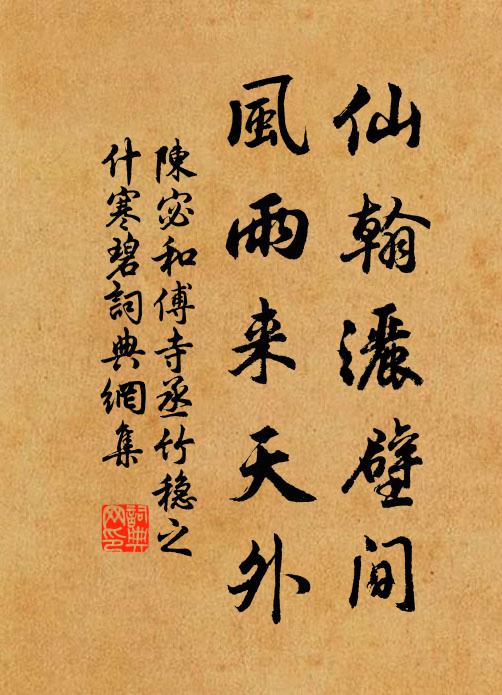 仙翰灑壁間
風雨来天外
陳宓和傅寺丞竹穏之
什寒碧詞典網集
詞典网印